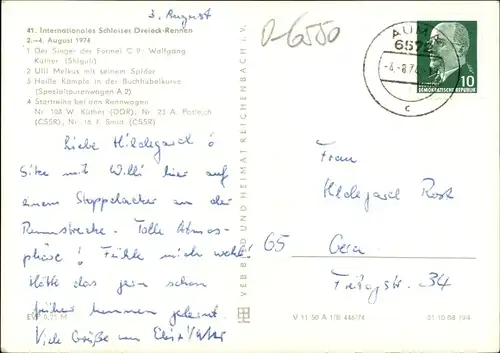 3. August
D-6550
41. Internationales Schleizer Dreieck-Rennen
2.—4. August 1974
1 Der Sieger der Formel C 9: Wolfgang
Küther (Shiguli)
2 Ulli Melkus mit seinem Spider
3 Heiße Kämpfe in der Buchhübelkurve
(Spezialtourenwagen A 2)
4 Startreihe bei den Rennwagen
Nr. 108 W. Küther (DDR), Nr. 23 A.
(CSSR), Nr. 18 F. Smit (CSSR)
AUMA
657
c
10
DEMOKRATISCHE REPUBLIK
Liebe Hildegard!
Sitze mit Willi hier auf
einem Stoppelacker an der
Rennstrecke. Tolle Atmos-
phäre! Fühle mich wohl!
Hätte das gern schon
früher kennen gelernt.
Viele Grüße von
VEB BILD UND HEIMAT REICHENBACH I. V.
Frau
Hildegard Rost
65 Gera
Freitagstr. 34
EVP 0,25 M
V 11 50 A 1/B 446/74
01 10 08 194